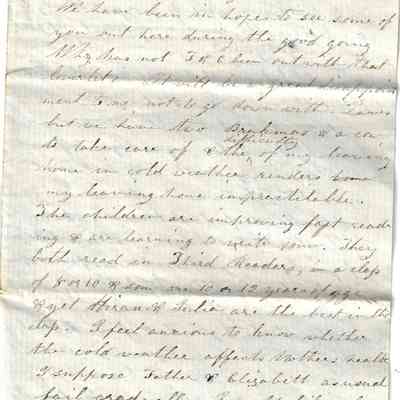 We have been in hopes to see some of
you out here during the good going
Why has not F & C been out with that
It will be a great disappoint
ment to me not to go down with James
but we have two Brahmas & a cow
to take care of & the difficulty of my leaving
home in cold weather renders
my leaving home impracticable.
The children are improving fast read
ing & are learning to write some. They
both read in Third Readers, in a class
of 8 or 10 & some are 10 or 12 years of age
& yet Hiram & Julia are the best in the
class. I feel anxious to know whether
the cold weather affects Mothers health
I suppose Father & Elizabeth as usual
fail gradually